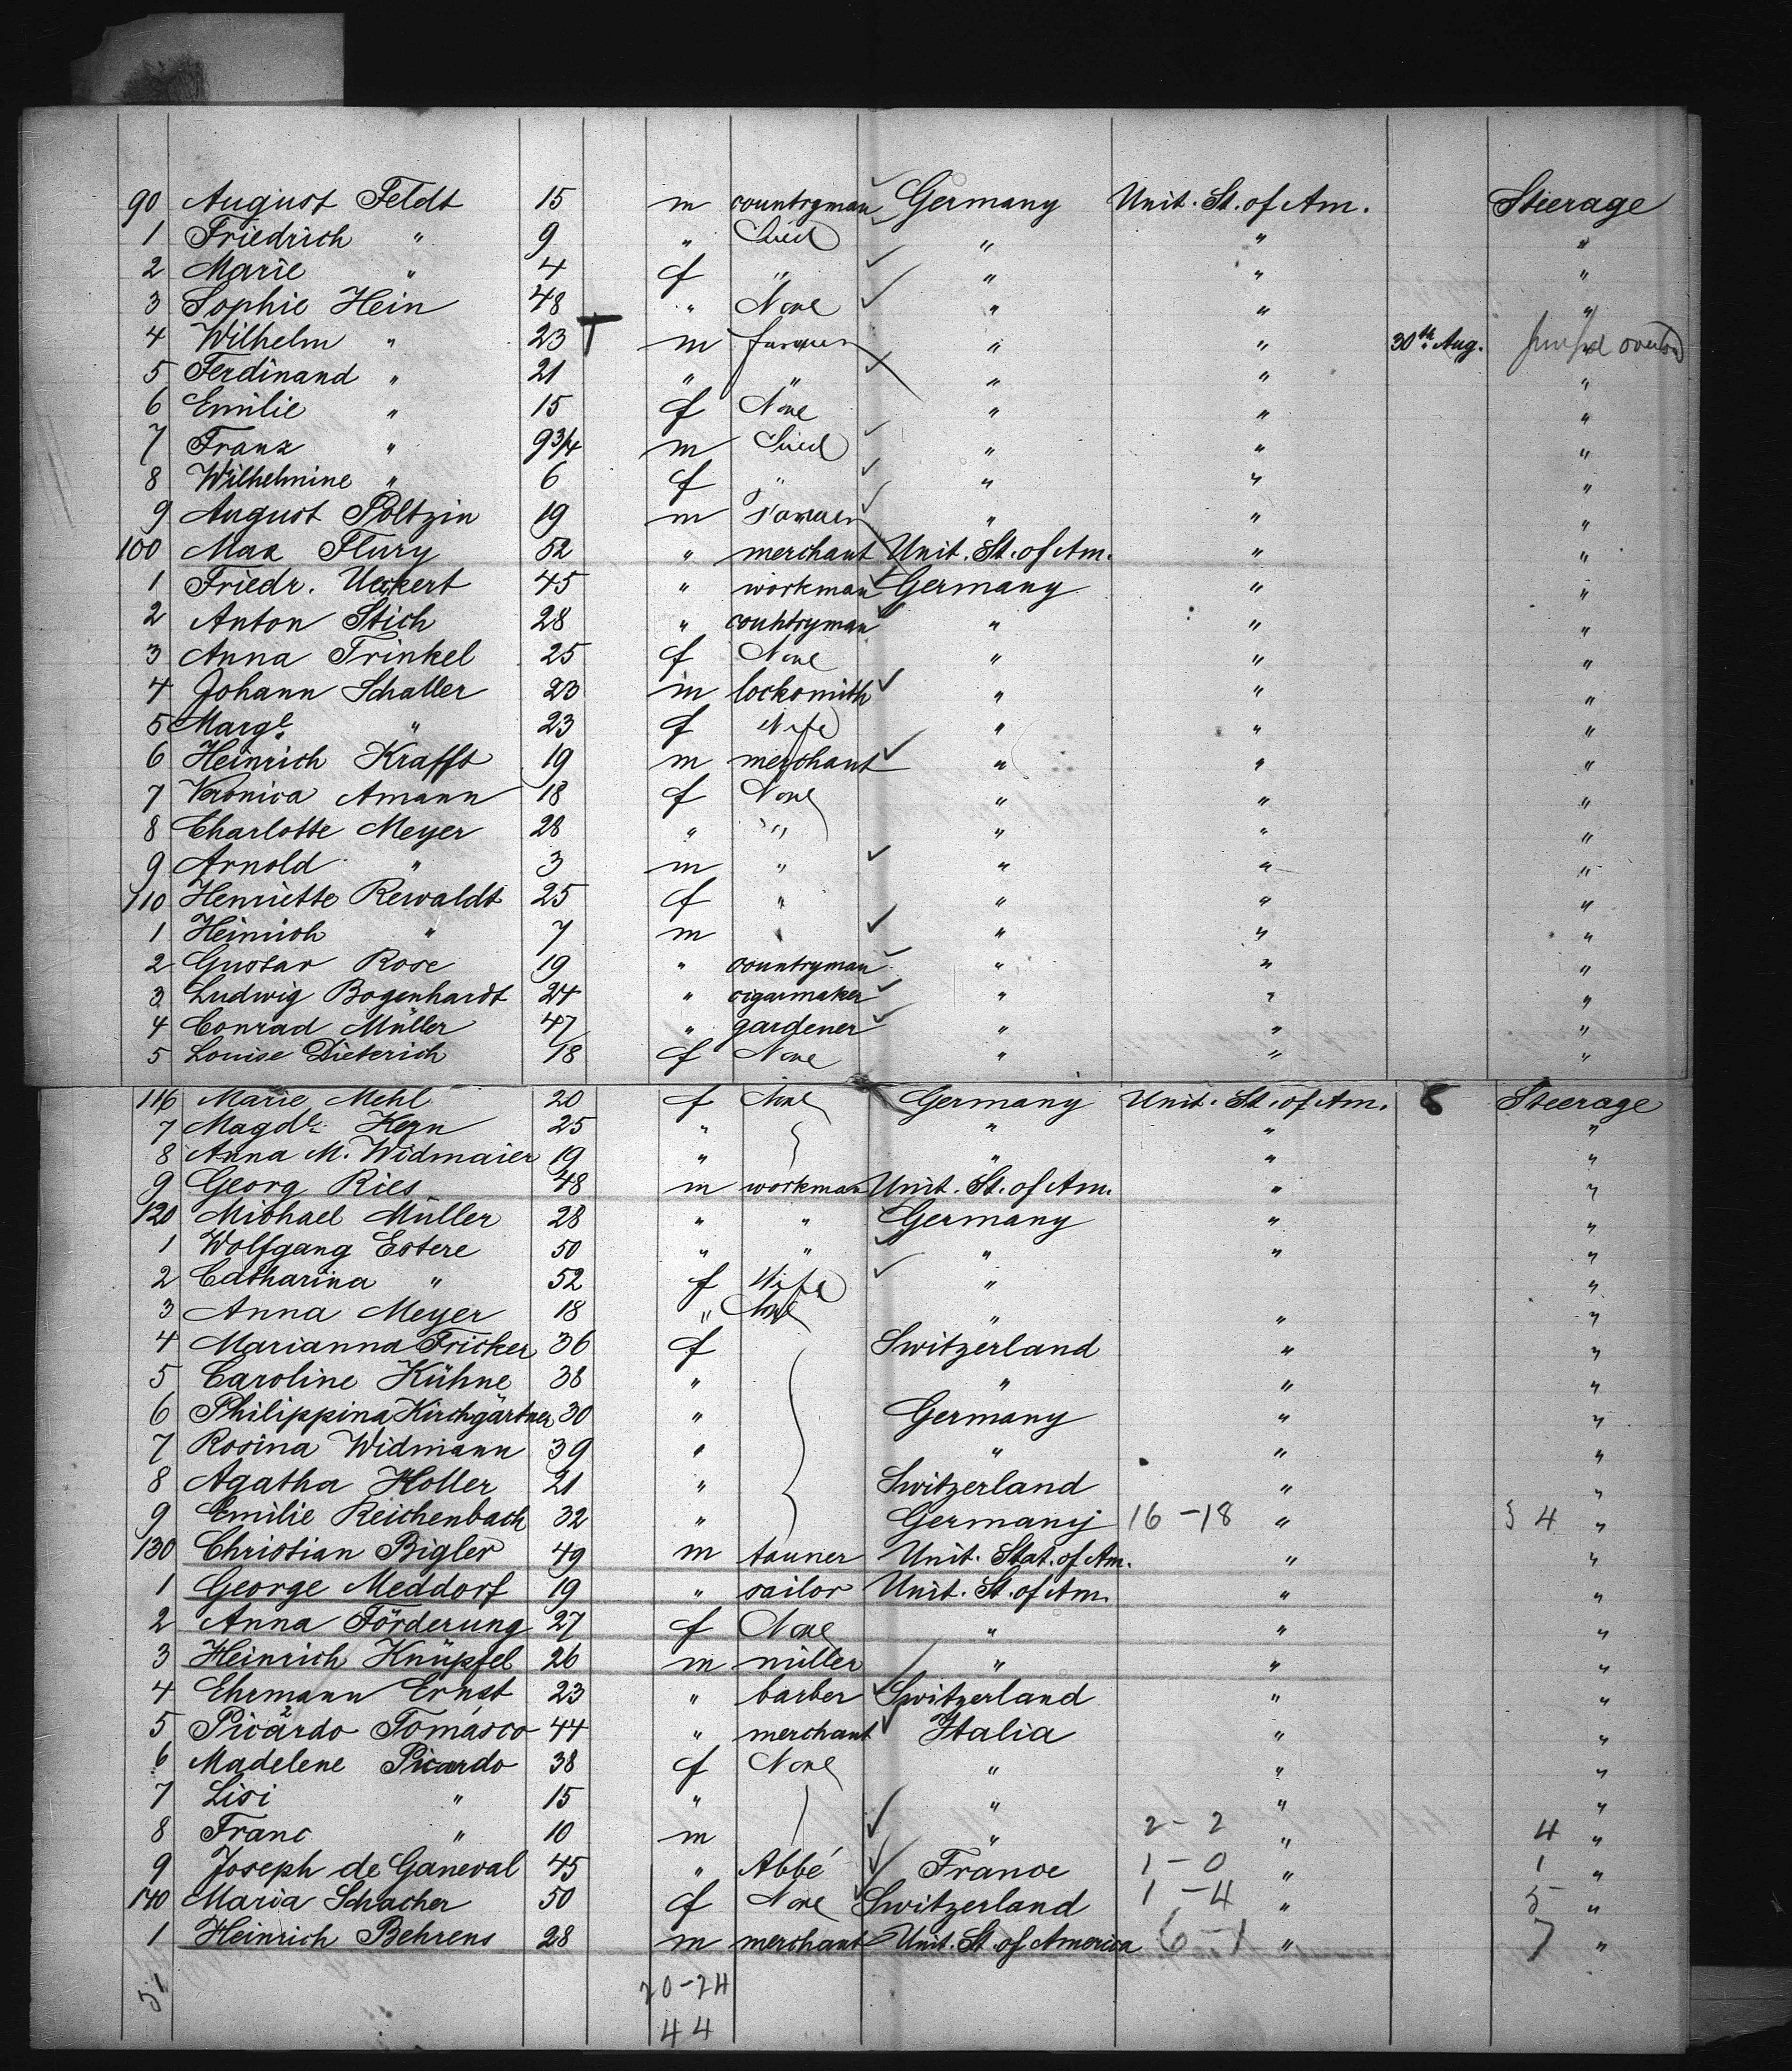 90 August Feldt 15 m countryman Germany Unit. St. of Am. Steerage
1 Friedrich " 9 " Child " " "
2 Marie " 4 f " " " "
3 Sophie Hein 48 " None " " "
4 Wilhelm " 23 m farmer " " 30th Aug. jumped overb'd
5 Ferdinand " 21 " " " " "
6 Emilie " 15 f None " " "
7 Franz " 9 3/4 m Child " " "
8 Wilhelmine " 6 f " " " "
9 August Poltzin 19 m Farmer " " "
100 Max Flury 52 " merchant Unit. St. of Am. " "
1 Friedr. Ueckert 45 " workman Germany " "
2 Anton Stich 28 " countryman " " "
3 Anna Trinkel 25 f None " " "
4 Johann Schaller 23 m locksmith " " "
5 Marge. " 23 f Wife " " "
6 Heinrich Krafft 19 m merchant " " "
7 Veronica Amann 18 f None " " "
8 Charlotte Meyer 28 " " " " "
9 Arnold " 3 m " " " "
110 Henriette Rewaldt 25 f " " " "
1 Heinrich " 7 m " " " "
2 Gustav Rose 19 " countryman " " "
3 Ludwig Bogenhardt 24 " cigarmaker " " "
4 Conrad Müller 47 " gardener " " "
5 Louise Dieterich 18 f None " " "
116 Marie Mehl 20 f None Germany Unit. St. of Am. Steerage
7 Magdl. Kern 25 " " " "
8 Anna M. Widmaier 19 " " " "
9 Georg Ries 48 m workman Unit. St. of Am. " "
120 Michael Müller 28 " " Germany " "
1 Wolfgang Estere 50 " " " " "
2 Catharina " 52 f Wife " "
3 Anna Meyer 18 " None " " "
4 Marianna Fricker 36 f Switzerland " "
5 Caroline Kühne 38 " " " "
6 Philippina Kirchgärtner 30 " Germany " "
7 Rosina Widmann 39 " " " "
8 Agatha Holler 21 " Switzerland " "
9 Emilie Reichenbach 32 " Germany 16 - 18 " 34 "
130 Christian Bigler 49 m tanner Unit. Stat. of Am. " "
1 George Meddorf 19 " sailor Unit. St. of Am. " "
2 Anna Förderung 27 f None " " "
3 Heinrich Knüpfel 26 m müller " " "
4 Ehrmann Ernst 23 " barber Switzerland " "
5 Picardo Tomásco 44 " merchant Italia " "
6 Madelene Picardo 38 f None " " "
7 Lisi " 15 " " " "
8 Franc " 10 m " 2 - 2 " 4 "
9 Joseph de Ganeval 45 " Abbé France 1 - 0 " 1 "
140 Maria Schacher 50 f None Switzerland 1 - 4 " 5 "
1 Heinrich Behrens 28 m merchant Unit. St. of America 6 - 1 " 7 "
51 20 - 24
44